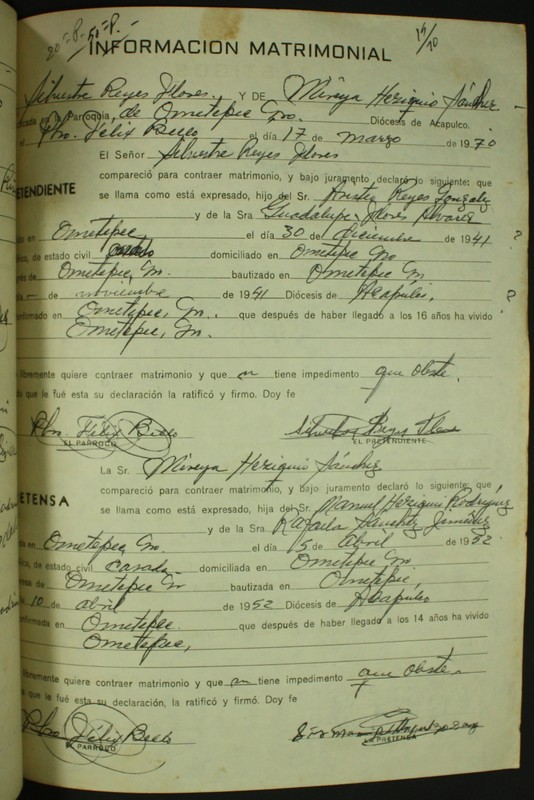 20-P. 50-P.-
15/70
INFORMACION MATRIMONIAL
Silvestre Reyes Flores, Y DE Mireya Heriquio Sánchez
Parroquia, de Ometepec Gro. Diócesis de Acapulco.
Pbro. Félix Bello el día 17 de marzo de 1970
El Señor Silvestre Reyes Flores
compareció para contraer matrimonio, y bajo juramento declaró lo siguiente: que
ETENDIENTE se llama como está expresado, hijo del Sr. Reyes González
y de la Sra Guadalupe Flores Alvarez
en Ometepec el día 30 de diciembre de 1941 ?
de estado civil domiciliado en Ometepec Gro
de Ometepec, Gro. bautizado en Ometepec Gro
- de noviembre de 1941 Diócesis de Acapulco. ?
onfirmado en Ometepec, Gro. que después de haber llegado a los 16 años ha vivido
Ometepec, Gro.
libremente quiere contraer matrimonio y que tiene impedimento que obste.
que le fué esta su declaración la ratificó y firmo. Doy fe
Pbro. Félix Bello
EL PARROCO EL PRETENDIENTE
La Sr. Mireya Heriquio Sánchez
compareció para contraer matrimonio, y bajo juramento declaró lo siguiente: que
ETENSA se llama como está expresado, hija del Sr. Manuel Heriquio Rodríguez
y de la Sra. Rafaela Sánchez Jiménez
en Ometepec, Gro. el día 15 de abril de 1952
de estado civil casada domiciliada en Ometepec Gro.
de Ometepec Gro bautizada en Ometepec,
10 de abril de 1952 Diócesis de Acapulco
onfirmada en Ometepec que después de haber llegado a los 14 años ha vivido
Ometepec,
libremente quiere contraer matrimonio y que tiene impedimento que obste.
que le fué esta su declaración, la ratificó y firmó. Doy fe
Pbro. Félix Bello
PARROCO LA PRETENSA